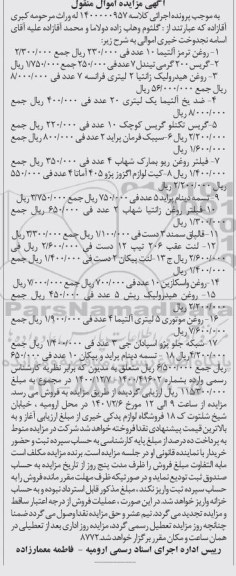 آگهی مزایده اموال منقول
به موجب پرونده اجرائی کلاسه ۱۴۰۰۰۰۰۹۵۷ له وراث مرحومه کبری
آقازاده که عبارتند از : گلثوم وهاب زاده دولاما و محمد آقازاده علیه آقای
اسامه نجدوخت خیری اموالی به شرح زیر:
۱- روغن ترمز آلتیما ۱۰ عدد فی ۲۳۰/۰۰۰ ریال جمع ۲/۳۰۰/۰۰۰
۲- گریس ۲۰۰ گرمی تیندل ۷ عدد فی ۲۵۰/۰۰۰ جمع ۱/۷۵۰/۰۰۰ ریال
۳- روغن هیدرولیک زانتیا ۲ لیتری فرانسه ۷ عدد فی ۸/۰۰۰/۰۰۰
ریال جمع ۵۶/۰۰۰/۰۰۰ ریال
۴- ضد یخ آلتیما یک لیتری ۲۰ عدد فی ۴۰۰/۰۰۰ ریال جمع
۸/۰۰۰/۰۰۰ ریال
۵- گریس تکنلو گریس کوچک ۱۰ عدد فی ۲۲۰/۰۰۰ ریال جمع
۲/۲۰۰/۰۰۰ ریال ۶- سیبک فرمان پراید ۲ عدد فی ۸۰۰/۰۰۰ ریال جمع
۱/۶۰۰/۰۰۰ ریال
۷- فیلتر روغن ریو بمارک شهاب ۴ عدد فی ۳۵۰/۰۰۰ ریال جمع
۱/۴۰۰/۰۰۰ ریال ۸- کیت لوازم اگزوز پژو ۴۰۵ آماتا ۴ عدد فی ۵۵۰/۰۰۰
ریال ۲/۲۰۰/۰۰۰ ریال
۹- تسمه دینام پراید ۵ عدد فی ۷۵۰/۰۰۰ ریال جمع ۳/۷۵۰/۰۰۰ ریال
۱۰- فیلتر روغن زانتیا شهاب ۲ عدد فی ۶۵۰/۰۰۰ ریال جمع
۱/۳۰۰/۰۰۰ ریال
۱۱- قالپاق سمند ۳ دست فی ۱/۱۰۰/۰۰۰ ریال جمع ۳/۳۰۰/۰۰۰ ریال
۱۲- لنت عقب ۲۰۶ تیپ ۱۲ دست فی ۲/۶۰۰/۰۰۰ ریال فی
۲/۶۰۰/۰۰۰ ریال ج ۱۳- لنت پیکان ۲ دست فی ۱/۴۰۰/۰۰۰ ریال جمع
۱/۴۰۰/۰۰۰ ریال
۱۴- روغن واسکازین ۱۰ عدد فی ۷۰۰/۰۰۰ ریال جمع ۷/۰۰۰/۰۰۰ ریال
۱۵- روغن هیدرولیک ریش ۵ عدد فی ۴۵۰/۰۰۰ ریال جمع
۲/۲۰۰/۰۰۰ ریال
۱۶- روغن موتوری ۵ لیتری آلتیما ۴ عدد فی ۱/۹۰۰/۰۰۰ ریال جمع
۷/۶۰۰/۰۰۰ ریال
۱۷- شبکه جلو پژو اسیدان جی ۳ عدد فی ۱/۴۰۰/۰۰۰ ریال جمع
۴/۲۰۰/۰۰۰ ریال ۱۸- تسمه دینام پراید و پیکان ۱۰ عدد فی ۶۵۰/۰۰۰
ریال جمع ۶/۵۰۰/۰۰۰ ریال متعلق به مدیون که برابر نظریه کارشناس
رسمی وارده بشماره ۱۴۰۰/۴۱۶۰۲ - ۱۴۰۰/۱۲/۷ در مجموع به مبلغ
۱۱۵/۳۰۰/۰۰۰ ریال ارزیابی گردیده از طریق مزایده به فروش می رسد.
مزایده از ساعت ۹ الی ۱۲ مورخ ۱۴۰۱/۲/۶ در محل ارومیه - خیابان
شیخ شلتوت ک ۱۸ فروشگاه لوازم یدکی خیری از مبلغ ارزیابی آغاز و به
بالاترین قیمت پیشنهادی نقدا فروخته خواهد شد شرکت در مزایده منوط
به پرداخت ده درصد از مبلغ پایه کارشناسی به حساب سپرده ثبت و حضور
خریدار یا نماینده قانونی او در جلسه مزایده است. برنده مزایده مکلف است
مابه التفاوت مبلغ فروش را ظرف مدت پنج روز از تاریخ مزایده به حساب
صندوق ثبت تودیع نماید و در صورتیکه ظرف مهلت مقرر مانده فروش را به
حساب سپرده ثبت واریز نکند ، مبلغ مذکور قابل استرداد نبوده و به حساب
خزانه واریز خواهد شد. در این صورت ، عملیات فروش از درجه اعتبار ساقط
و مزایده تجدید می گردد. نیم عشر و حق مزایده نقدا وصول می گردد ضمنا
چنانچه روز مزایده تعطیل رسمی گردد، مزایده روز اداری بعد از تعطیلی در
همان ساعت و مکان مقرر برگزار خواهد شد. ۸۷۷۲
رییس اداره اجرای اسناد رسمی ارومیه - فاطمه معمارزاده